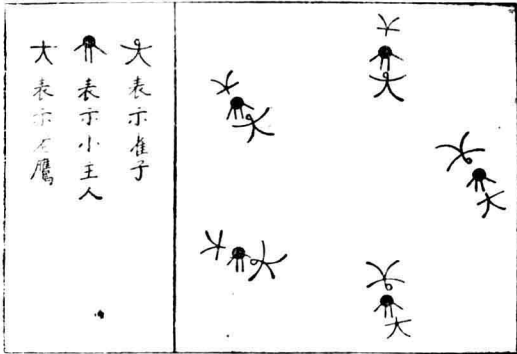 表示雀子
表示小主人
表示老鷹